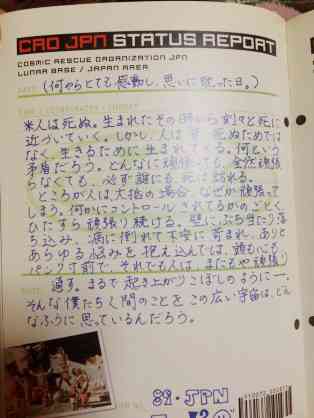 CRO JPN STATUS REPORT
COSMIC RESCUE ORGANIZATION JPN
LUNAR BASE / JAPAN AREA
DATE
(何やらとても感動し、思いに耽った日。)
TIME / COORDINATES / SUMMARY
※人は死ぬ。生まれたその時から刻々と死に
近づいていく。しかし、人は皆死ぬためでは
なく、生きるために生まれてくる。何という
矛盾だろう。どんなに頑張っても、全然頑張
らなくても、必ず誰にも死は訪れる。
ところが人は大抵の場合、なぜか頑張って
しまう。何かにコントロールされてるかのごとく、
ひたすら頑張り続ける。壁にぶち当たり落
ち込み、病に倒れて不安に苛まれ、ありと
あらゆる悩みを抱え込んでは、頭も心も
パンク寸前で、それでも人は、またもや頑張り
過す。まるで起き上がりこぼしのように…。
そんな僕たち人間のことを この広い宇宙は、どん
なふうに思っているんだろう。
89・JPN